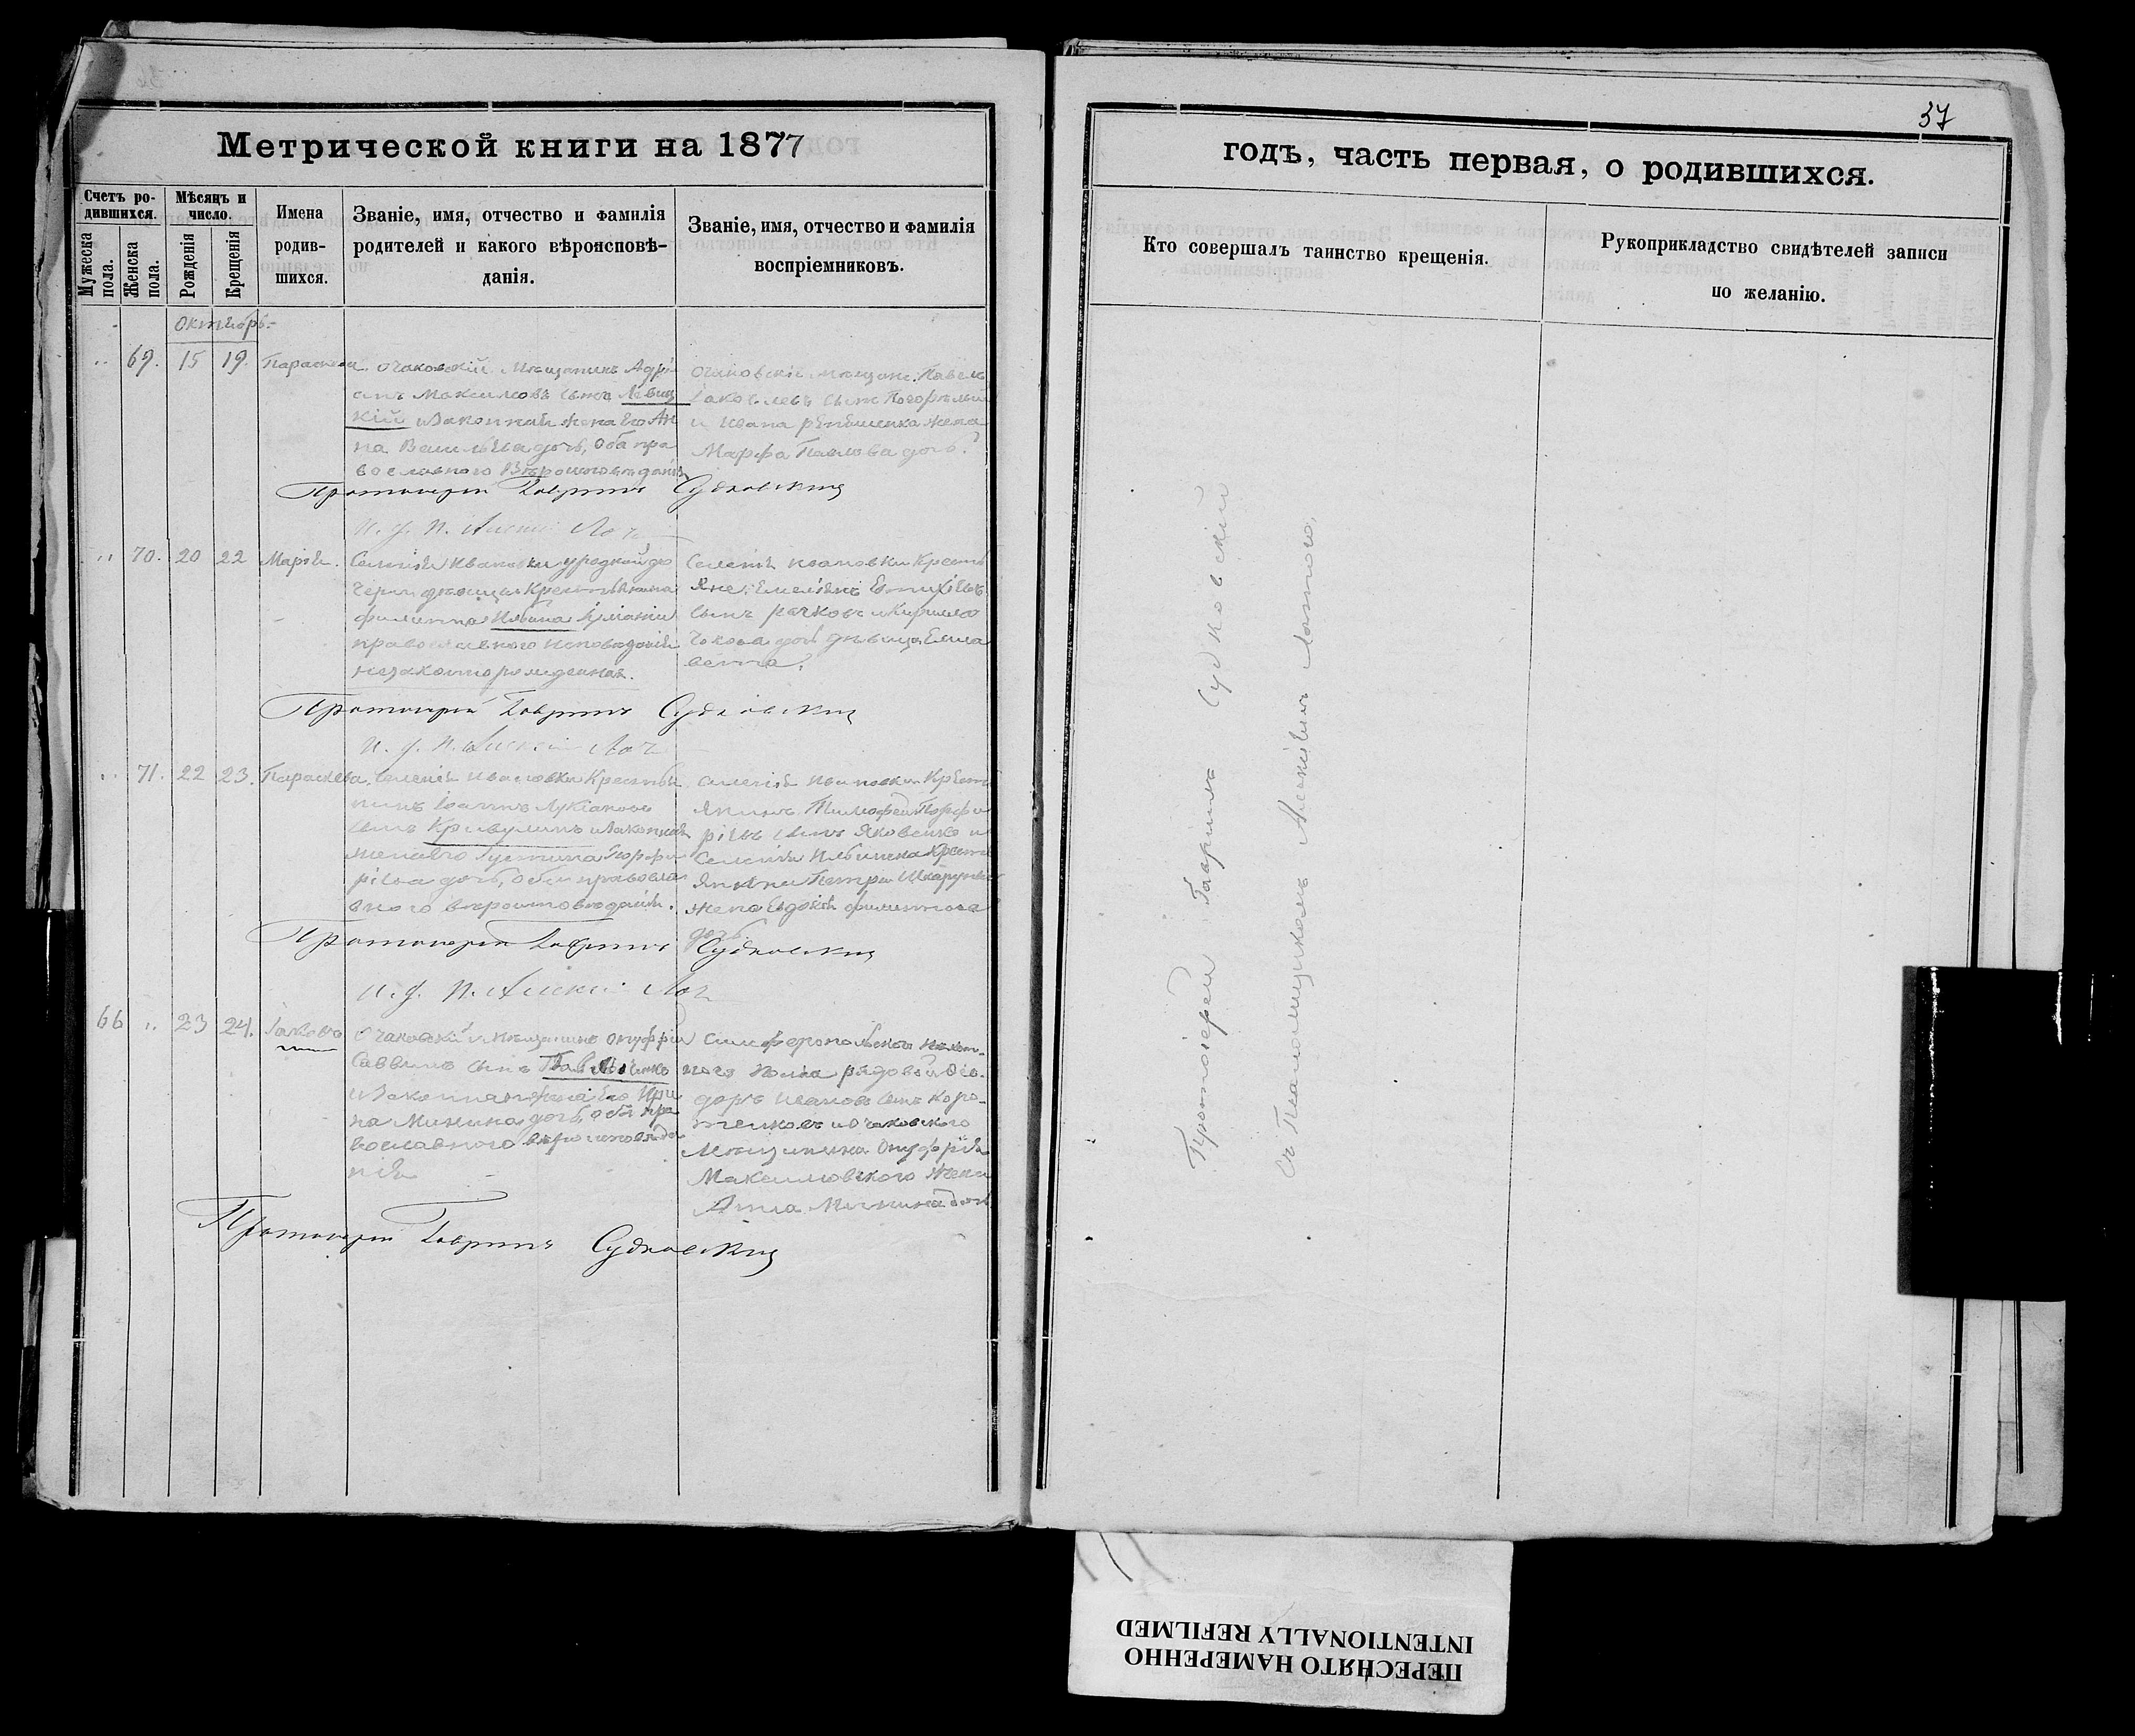 Метрической книги на 1877
Счетъ ро-
дившихся.
Мужеска
пола.
Женска
пола.
Мѣсяцъ и
число.
Рожденія
Крещенія
Имена
родив-
шихся.
Званіе, имя, отчество и фамилія
родителей и какого вѣроисповѣ-
данія.
Званіе, имя, отчество и фамилія
воспріемниковъ.
Октябрь
69. 15 19. Параскева
Очаковскій Мѣщанинъ Адрі
анъ Максимовъ сынъ Левиц
кій и Законная жена его Ан
на Васильева дочь, Оба пра
вославного Вѣроисповѣданія
Очаковскіе мѣщане: Павелъ
Іаковлевъ сынъ
и Ивана жена
Марфа Павлова дочь.
Протоіерей Гавріилъ Судковскій
И. д. П. Алексій
70. 20 22 Марія.
Селенія Ивановки
Крестьянина
Филиппа
православного исповѣданія
незаконнорожденная.
Селенія Ивановки Кресть
яне: Емеліянъ Евтихіевъ
сынъ и Кирилла
дочь дѣвица Елиса
вета.
Протоіерей Гавріилъ Судковскій
И. д. П. Алексій
71. 22 23. Параскева
Селенія Ивановки Крестья
нинъ Іоаннъ Лукіановъ
сынъ Кривулинъ и Законная
жена его Іустина Порфи
ріева дочь, оба правосла
вного вѣроисповѣданія.
Селенія Ивановки Крест
янинъ Тимофей Порфи
ріевъ сынъ Яковенко и
Селенія Крест
янина Петра
жена Евдокія Филиппова
дочь.
Протоіерей Гавріилъ Судковскій
И. д. П. Алексій
66 23 24. Іаковъ
Очаковскій мѣщанинъ Онуфрій
Саввинъ сынъ
и Законная жена его Ири
на Минина дочь, оба пра
вославного вѣроисповѣда
нія
Симферопольского
полка рядовой Ѳео-
доръ Ивановъ сынъ Коро-
и Очаковского
Мѣщанина Онуфрія
Максимовского жена
Анна Минина дочь
Протоіерей Гавріилъ Судковскій
37
годъ, часть первая, о родившихся.
Кто совершалъ таинство крещенія.
Рукоприкладство свидѣтелей записи
по желанію.
Протоіерей Гавріилъ Судковскій
съ Псаломщикомъ Алексіемъ
ПЕРЕСНЯТО НАМЕРЕННО
INTENTIONALLY REFILMED